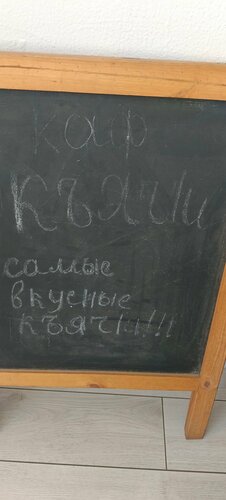 кайф
КЪЯЧИ
самые
вкусные
КЪЯЧИ!!!